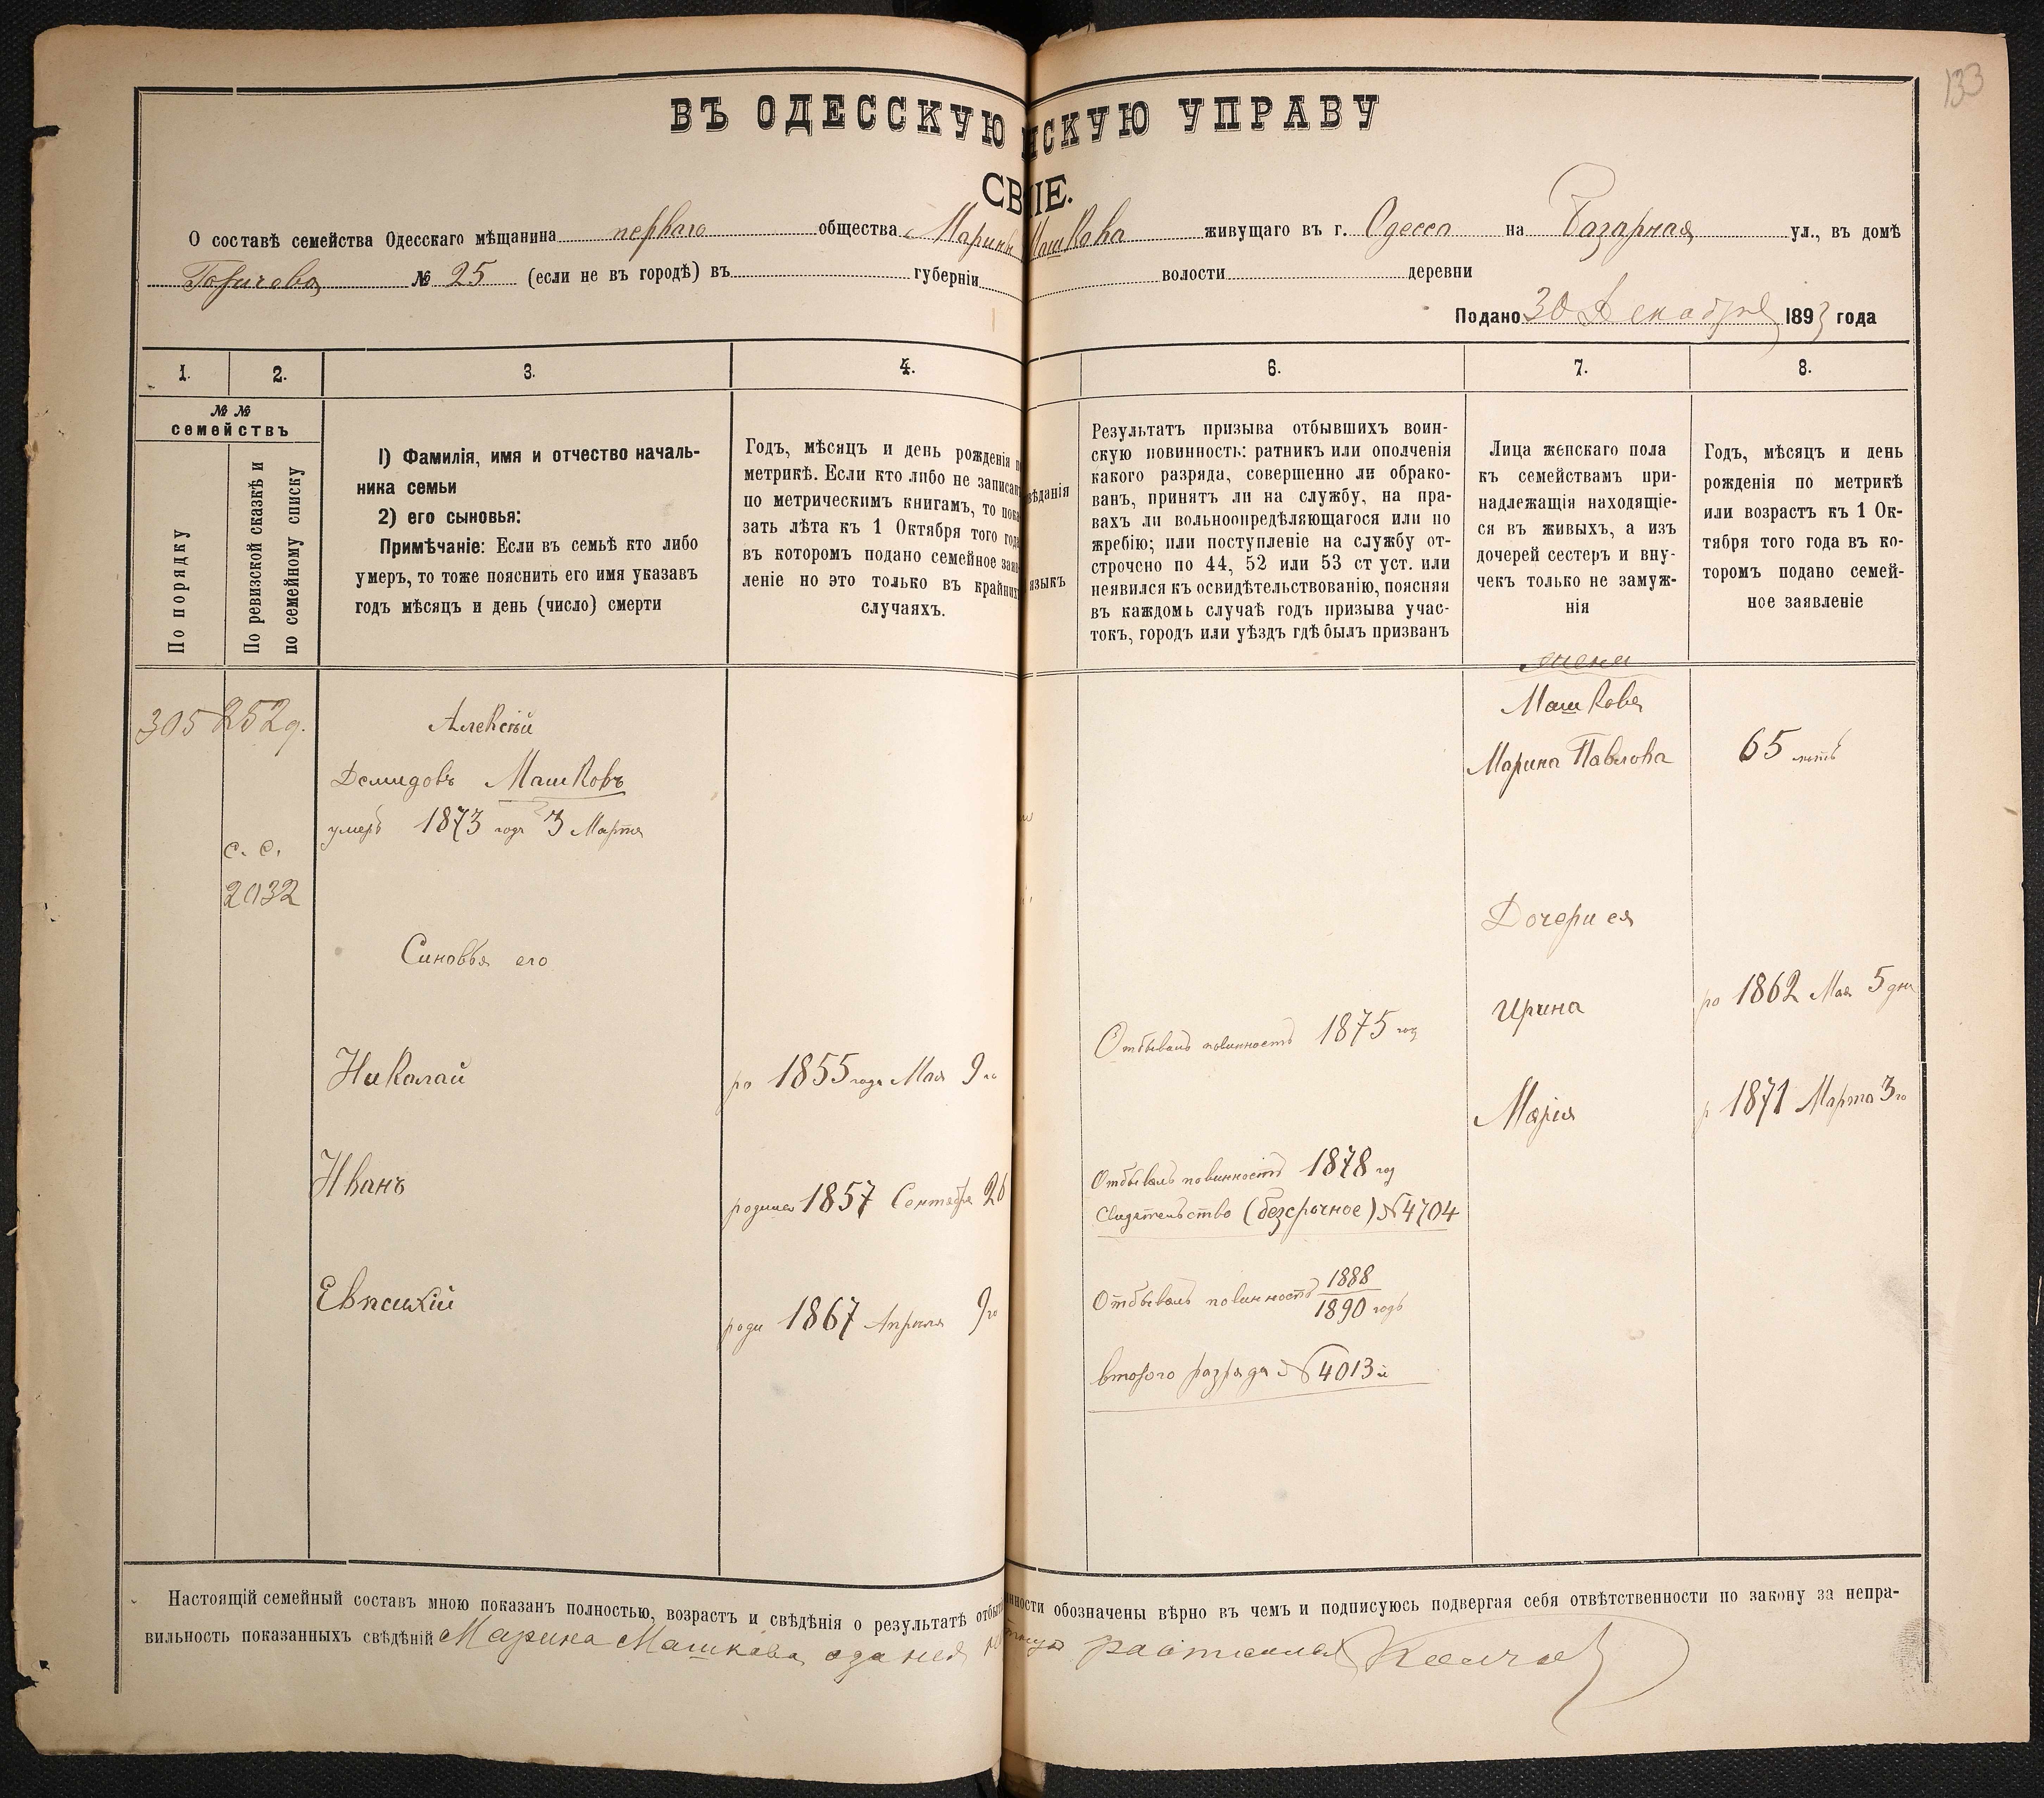 133
ВЪ ОДЕССКУЮ НСКУЮ УПРАВУ
СВ НІЕ.
О составѣ семейства Одесскаго мѣщанина перваго общества Марины Машкова живущаго въ г. Одесса на Базарная ул., въ домѣ
№ 25 (если не въ городѣ) въ губерніи волости деревни
Подано 30 Декабря 1893 года
1. 2. 3. 4. 6. 7. 8.
№ №
семействъ
По порядку
По ревизской сказкѣ и
по семейному списку
1) Фамилія, имя и отчество началь-
ника семьи
2) его сыновья:
Примѣчаніе: Если въ семьѣ кто либо
умеръ, то тоже пояснить его имя указавъ
годъ мѣсяцъ и день (число) смерти
Годъ, мѣсяцъ и день рожденія п
метрикѣ. Если кто либо не записан
по метрическимъ книгамъ, то пока
зать лѣта къ 1 Октября того года
въ которомъ подано семейное заяв
леніе но это только въ крайних
случаяхъ.
вѣданія
языкъ
Результатъ призыва отбывшихъ воин-
скую повинность: ратникъ или ополченія
какого разряда, совершенно ли обрако-
ванъ, принятъ ли на службу, на пра-
вахъ ли вольноопредѣляющагося или по
жребію; или поступленіе на службу от-
строчено по 44, 52 или 53 ст уст. или
неявился къ освидѣтельствованію, поясняя
въ каждомъ случаѣ годъ призыва учас-
токъ, городъ или уѣздъ гдѣ былъ призванъ
Лица женскаго пола
къ семействамъ при-
надлежащія находящіе-
ся въ живыхъ, а изъ
дочерей сестеръ и вну-
чекъ только не замуж-
нія
Годъ, мѣсяцъ и день
рожденія по метрикѣ
или возрастъ къ 1 Ок-
тября того года въ ко-
торомъ подано семей-
ное заявленіе
305 252 д.
с. с.
2032
Алексѣй
Демидовъ Машковъ
умеръ 1873 года 3 Марта
Синовья его
Николай
ро 1855 года Мая 9 го
Отбывалъ повинность 1875 год
Иванъ
родился 1857 Сентября 26
Отбывалъ повинность 1878 год
Свидетельство (безсрочное) № 4704
Евпсихій
роди 1867 Апреля 9 го
Отбывалъ повинность 1888
1890 годъ
второго разряда № 4013 й
жена
Машкова
Марина Павлова
65 летъ
Дочери ея
Ирина
ро 1862 Мая 5 дня
Марія
р 1871 Марта 3 го
Настоящій семейный составъ мною показанъ полностью, возрастъ и свѣдѣнія о результатѣ отбы инности обозначены вѣрно въ чемъ и подписуюсь подвергая себя отвѣтственности по закону за непра-
вильность показанныхъ свѣдѣній Марина Машкова